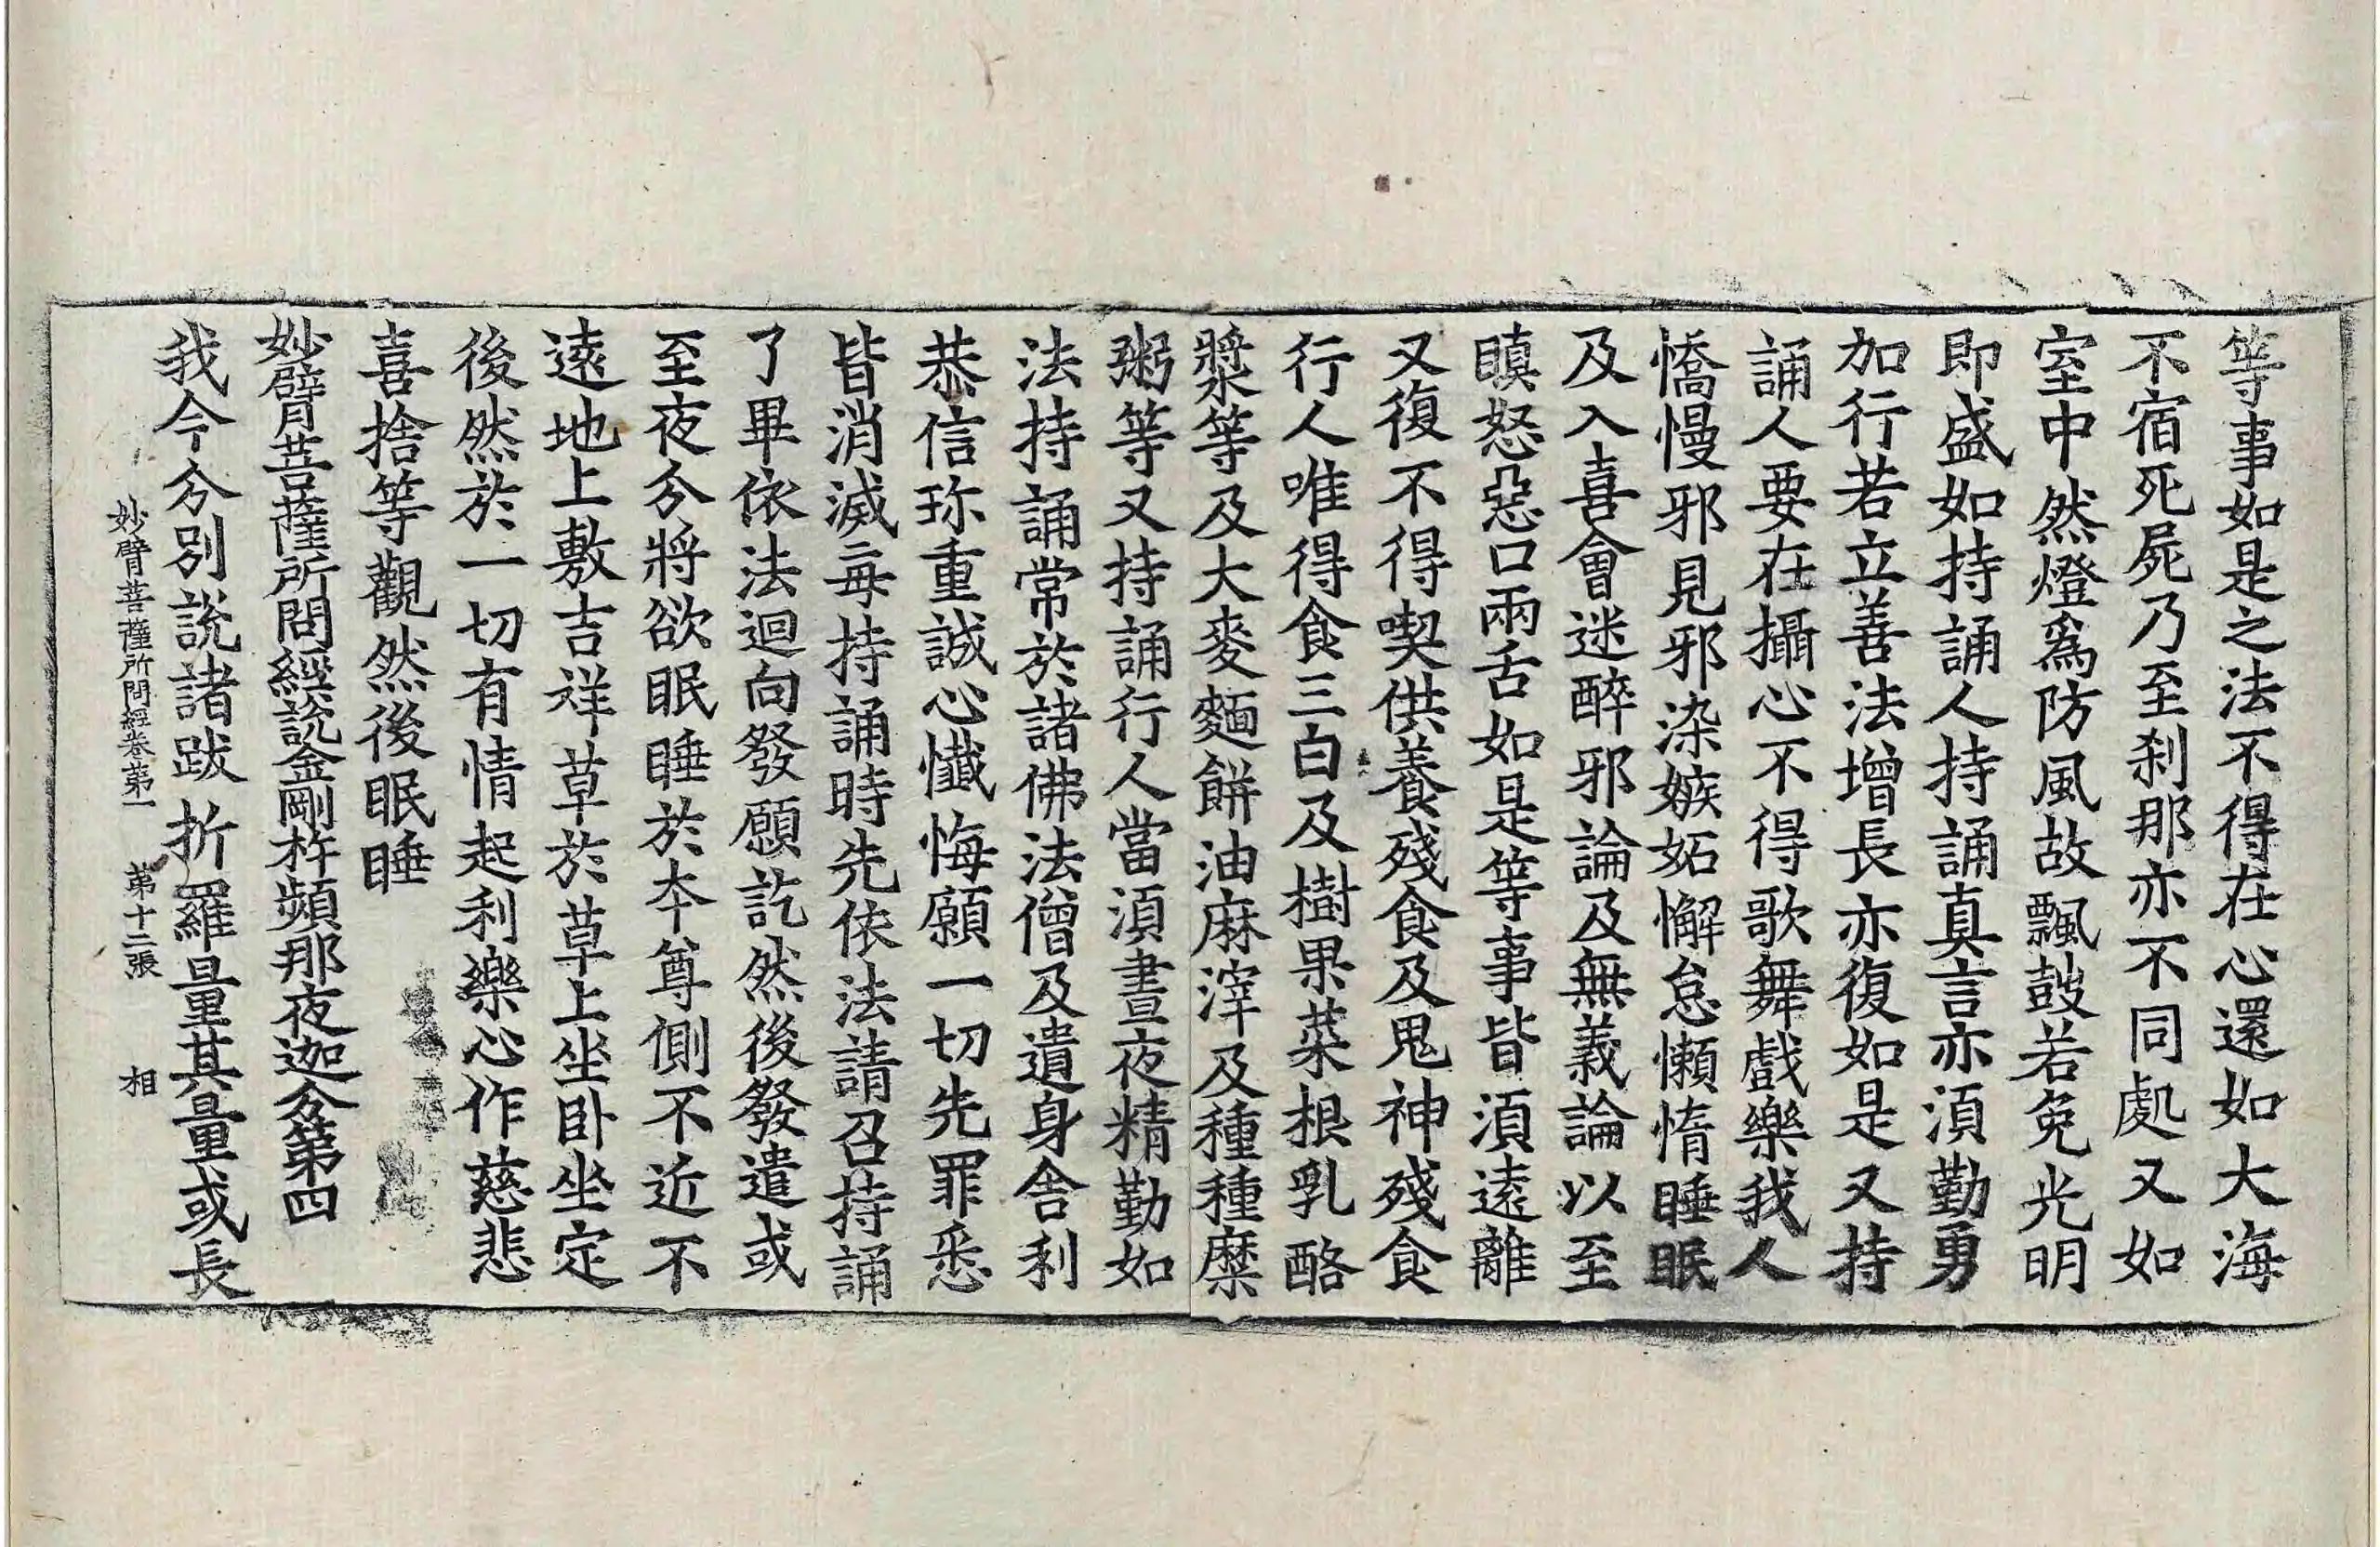 等事如是之法不得在心還如大海
不宿死屍乃至剎那亦不同處又如
室中然燈爲防風故飄鼓若免光明
即盛如持誦人持誦真言亦須勤勇
加行若立善法增長亦復如是又持
誦人要在攝心不得歌舞戲樂我人
憍慢邪見邪染嫉妬懈怠懶惰睡眠
及入喜會迷醉邪論及無義論以至
瞋怒惡口兩舌如是等事皆須遠離
又復不得喫供養殘食及鬼神殘食
行人唯得食三白及樹果菜根乳酪
漿等及大麥麵餅油麻滓及種種糜
粥等又持誦行人當須晝夜精勤如
法持誦常於諸佛法僧及遺身舍利
恭信珎重誠心懺悔願一切先罪悉
皆消滅二每持誦時先依法請召持誦
了畢依法迴向發願訖然後發遣或
至夜分將欲眠睡於本尊側不近不
遠地上敷吉祥草於草上坐卧坐定
後然於一切有情起利樂心作慈悲
喜捨等觀然後眠睡
妙臂菩薩所問經說金剛杵頻那夜迦分第四
我今分別說諸跋折羅量其量或長
妙臂菩薩所問經卷第一 第十二張 相